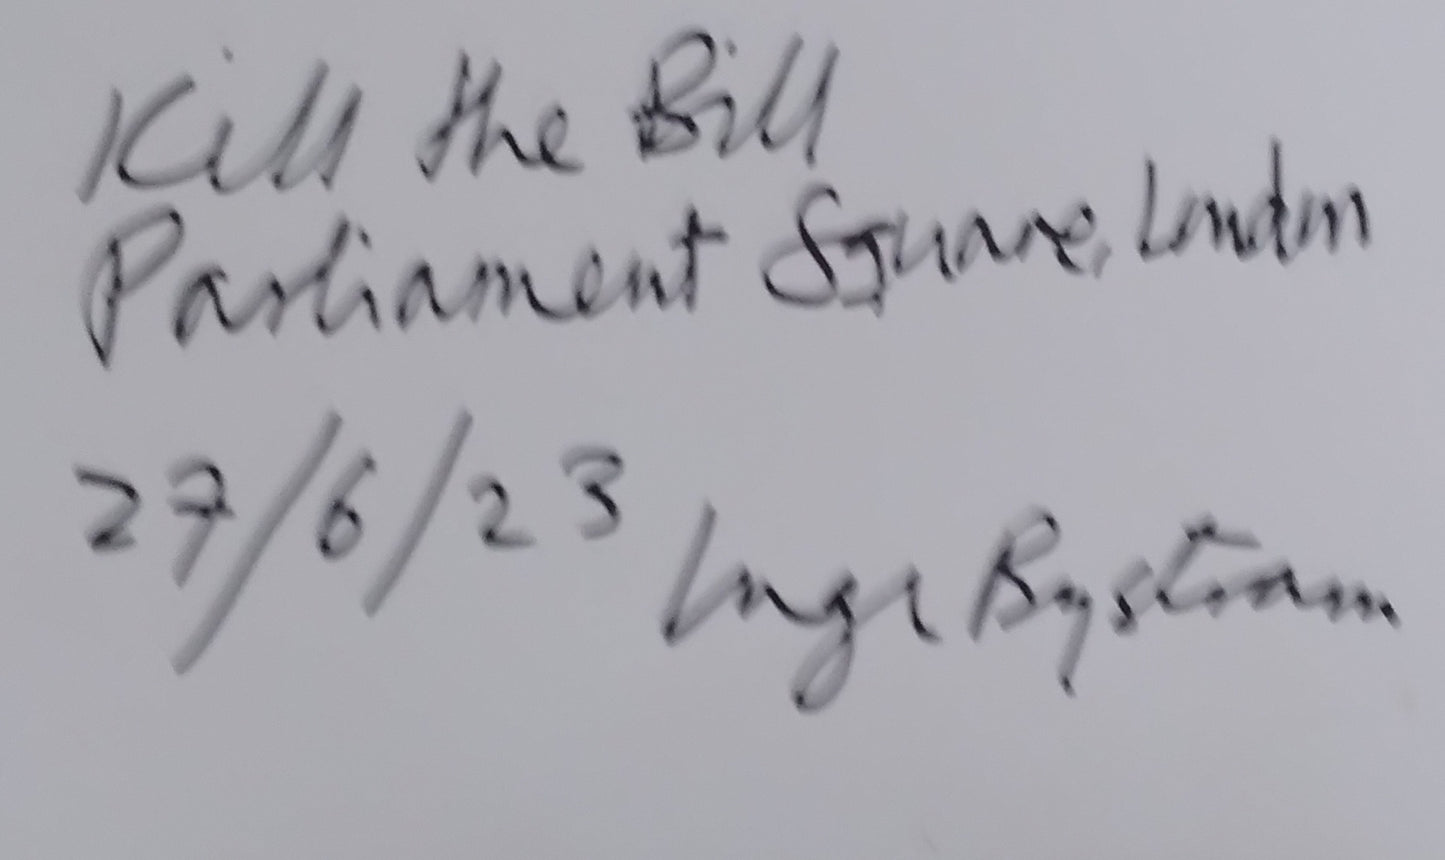 Kill the Bill
Parliament Square, London
27/6/23 Inge Bystram